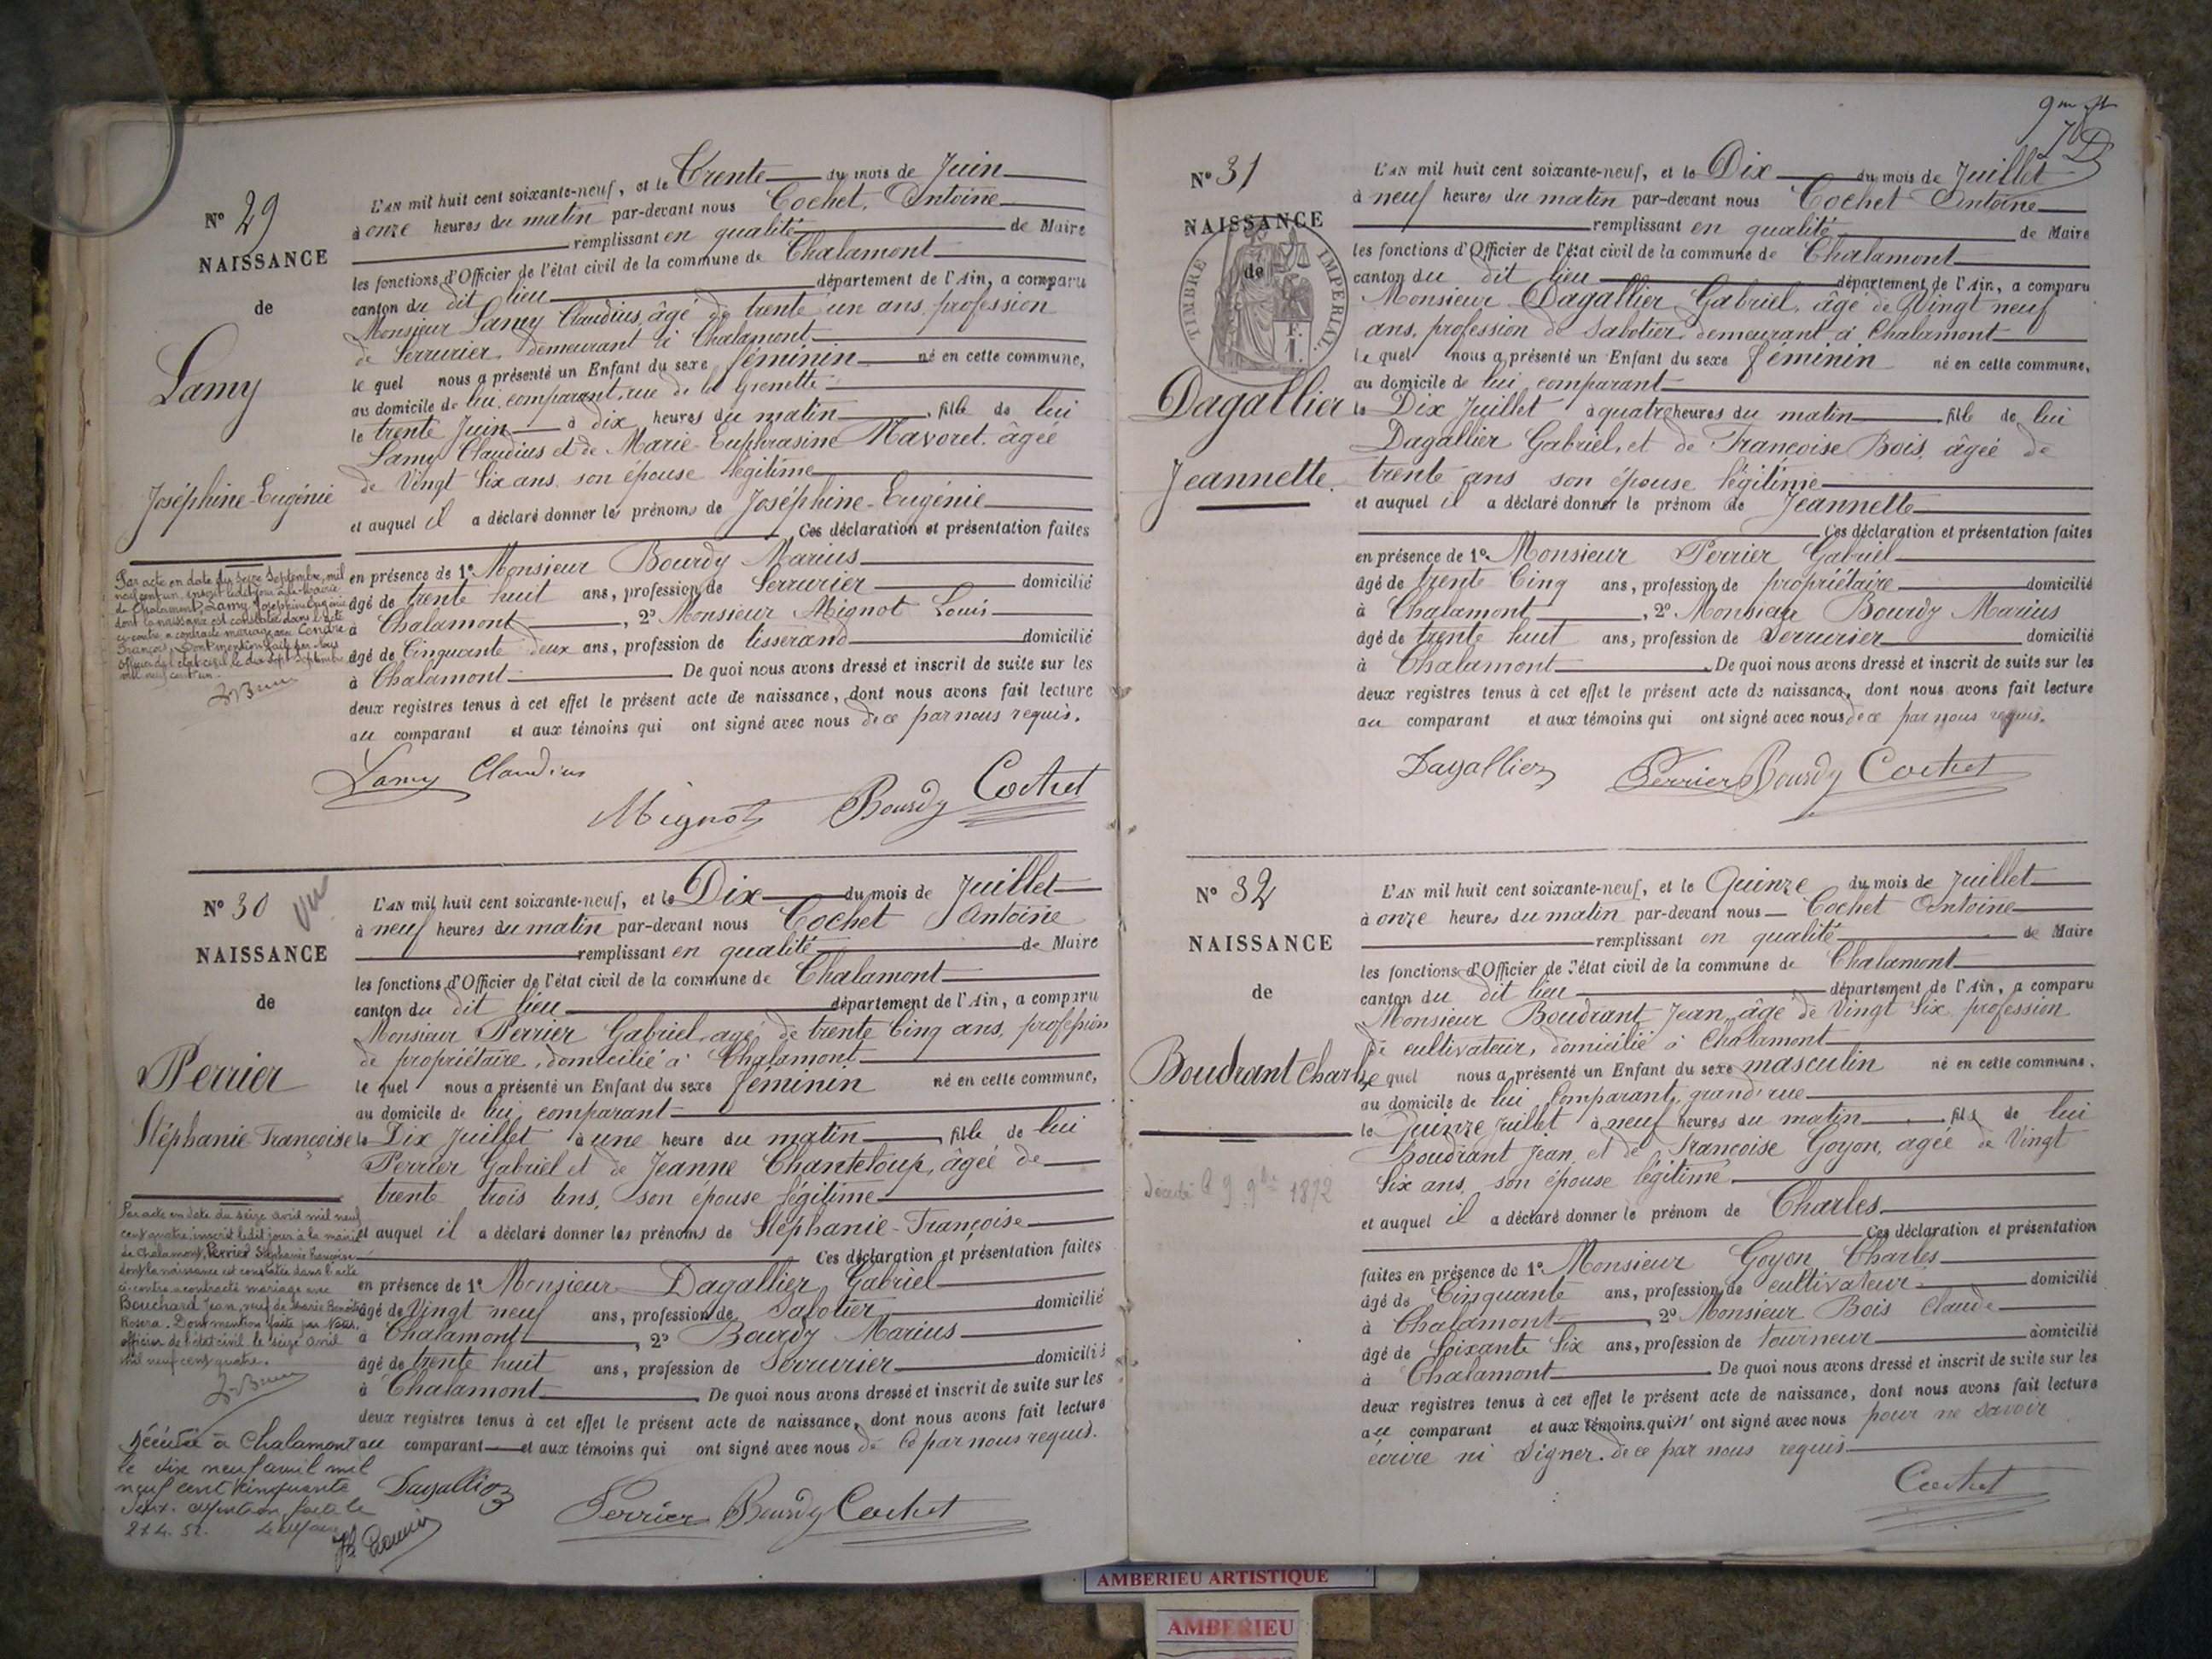 N° 29
NAISSANCE
de
Lamy
Joséphine-Eugénie
L'AN mil huit cent soixante-neuf, et le Trente du mois de Juin
à onze heures du matin par-devant nous Cochet, Antoine
remplissant en qualité de Maire
les fonctions d'Officier de l'état civil de la commune de Chalamont
canton du dit lieu département de l'Ain, a comparu
Monsieur Lamy Claudius, âgé de trente un ans, profession
de Serrurier, demeurant à Chalamont
le quel nous a présenté un Enfant du sexe féminin né en cette commune,
au domicile de lui comparant, rue de la Grenette
le trente Juin à dix heures du matin, fille de lui
Lamy Claudius et de Marie-Euphrasine Mavoret, âgée
de Vingt Six ans, son épouse légitime
et auquel il a déclaré donner les prénoms de Joséphine-Eugénie
Ces déclaration et présentation faites
en présence de 1° Monsieur Bourdy Marius
âgé de trente huit ans, profession de Serrurier domicilié
à Chalamont, 2° Monsieur Mignot Louis
âgé de Cinquante deux ans, profession de tisserand domicilié
à Chalamont De quoi nous avons dressé et inscrit de suite sur les
deux registres tenus à cet effet le présent acte de naissance, dont nous avons fait lecture
au comparant et aux témoins qui ont signé avec nous de ce par nous requis.
Par acte en date du seize Septembre, mil
neuf cent un, inscrit ledit jour à la mairie
de Chalamont, Lamy Joséphine Eugénie
dont la naissance est constatée dans l'acte
ci-contre a contracté mariage avec Condre
François. Dont mention faite par Nous
officier de l'état civil le dix sept Septembre
mil neuf cent un.
Lamy Claudius
Mignot Bourdy Cochet
N° 30
Vu
NAISSANCE
de
Perrier
Stéphanie Françoise
L'AN mil huit cent soixante-neuf, et le Dix du mois de Juillet
à neuf heures du matin par-devant nous Cochet Antoine
remplissant en qualité de Maire
les fonctions d'Officier de l'état civil de la commune de Chalamont
canton du dit lieu département de l'Ain, a comparu
Monsieur Perrier Gabriel, agé de trente Cinq ans, profession
de propriétaire, domicilié à Chalamont
le quel nous a présenté un Enfant du sexe féminin né en cette commune,
au domicile de lui comparant
le Dix Juillet à une heure du matin, fille de lui
Perrier Gabriel et de Jeanne Chanteloup, âgée de
trente trois ans, son épouse légitime
et auquel il a déclaré donner les prénoms de Stéphanie-Françoise
Ces déclaration et présentation faites
en présence de 1° Monsieur Dagallier Gabriel
âgé de Vingt neuf ans, profession de Sabotier domicilié
à Chalamont, 2° Bourdy Marius
âgé de trente huit ans, profession de Serrurier domicilié
à Chalamont De quoi nous avons dressé et inscrit de suite sur les
deux registres tenus à cet effet le présent acte de naissance, dont nous avons fait lecture
au comparant et aux témoins qui ont signé avec nous de ce par nous requis.
Par acte en date du seize avril mil neuf
cent quatre, inscrit ledit jour à la mairie
de Chalamont, Perrier Stéphanie Françoise
dont la naissance est constatée dans l'acte
ci-contre a contracté mariage avec
Bouchard Jean, veuf de Marie Benoîte
Rosera. Dont mention faite par Nous,
officier de l'état civil le seize avril
mil neuf cent quatre.
Décédée à Chalamont
le dix neuf avril mil
neuf cent cinquante
deux. Mention faite le
21.4.52. Le Maire
Dagallier
Perrier Bourdy Cochet
N° 31
NAISSANCE
de
TIMBRE IMPERIAL
Dagallier
Jeannette
L'AN mil huit cent soixante-neuf, et le Dix du mois de Juillet
à neuf heures du matin par-devant nous Cochet Antoine
remplissant en qualité de Maire
les fonctions d'Officier de l'état civil de la commune de Chalamont
canton du dit lieu département de l'Ain, a comparu
Monsieur Dagallier Gabriel, âgé de Vingt neuf
ans, profession de Sabotier, demeurant à Chalamont
le quel nous a présenté un Enfant du sexe féminin né en cette commune,
au domicile de lui comparant
le Dix Juillet à quatre heures du matin fille de lui
Dagallier Gabriel, et de Françoise Bois, âgée de
trente ans son épouse légitime
et auquel il a déclaré donner le prénom de Jeannette
Ces déclaration et présentation faites
en présence de 1° Monsieur Perrier Gabriel
âgé de trente Cinq ans, profession de propriétaire domicilié
à Chalamont, 2° Monsieur Bourdy Marius
âgé de trente huit ans, profession de Serrurier domicilié
à Chalamont De quoi nous avons dressé et inscrit de suite sur les
deux registres tenus à cet effet le présent acte de naissance, dont nous avons fait lecture
au comparant et aux témoins qui ont signé avec nous de ce par nous requis.
Dagallier Perrier Bourdy Cochet
N° 32
NAISSANCE
de
Boudrant Charles
décédé le 9 9bre 1872
L'AN mil huit cent soixante-neuf, et le Quinze du mois de Juillet
à onze heures du matin par-devant nous Cochet Antoine
remplissant en qualité de Maire
les fonctions d'Officier de l'état civil de la commune de Chalamont
canton du dit lieu département de l'Ain, a comparu
Monsieur Boudrant Jean, âgé de Vingt Six profession
de cultivateur, domicilié à Chalamont
le quel nous a présenté un Enfant du sexe masculin né en cette commune,
au domicile de lui Comparant, grand'rue
le Quinze Juillet à neuf heures du matin, fils de lui
Boudrant Jean, et de Françoise Goyon, agée de Vingt
Six ans, son épouse légitime
et auquel il a déclaré donner le prénom de Charles
Ces déclaration et présentation
faites en présence de 1° Monsieur Goyon Charles
âgé de Cinquante ans, profession de cultivateur domicilié
à Chalamont, 2° Monsieur Bois Claude
âgé de Soixante Six ans, profession de tourneur domicilié
à Chalamont De quoi nous avons dressé et inscrit de suite sur les
deux registres tenus à cet effet le présent acte de naissance, dont nous avons fait lecture
au comparant et aux témoins qui n'ont signé avec nous pour ne savoir
écrire ni signer. de ce par nous requis
Cochet
AMBERIEU ARTISTIQUE
AMBERIEU